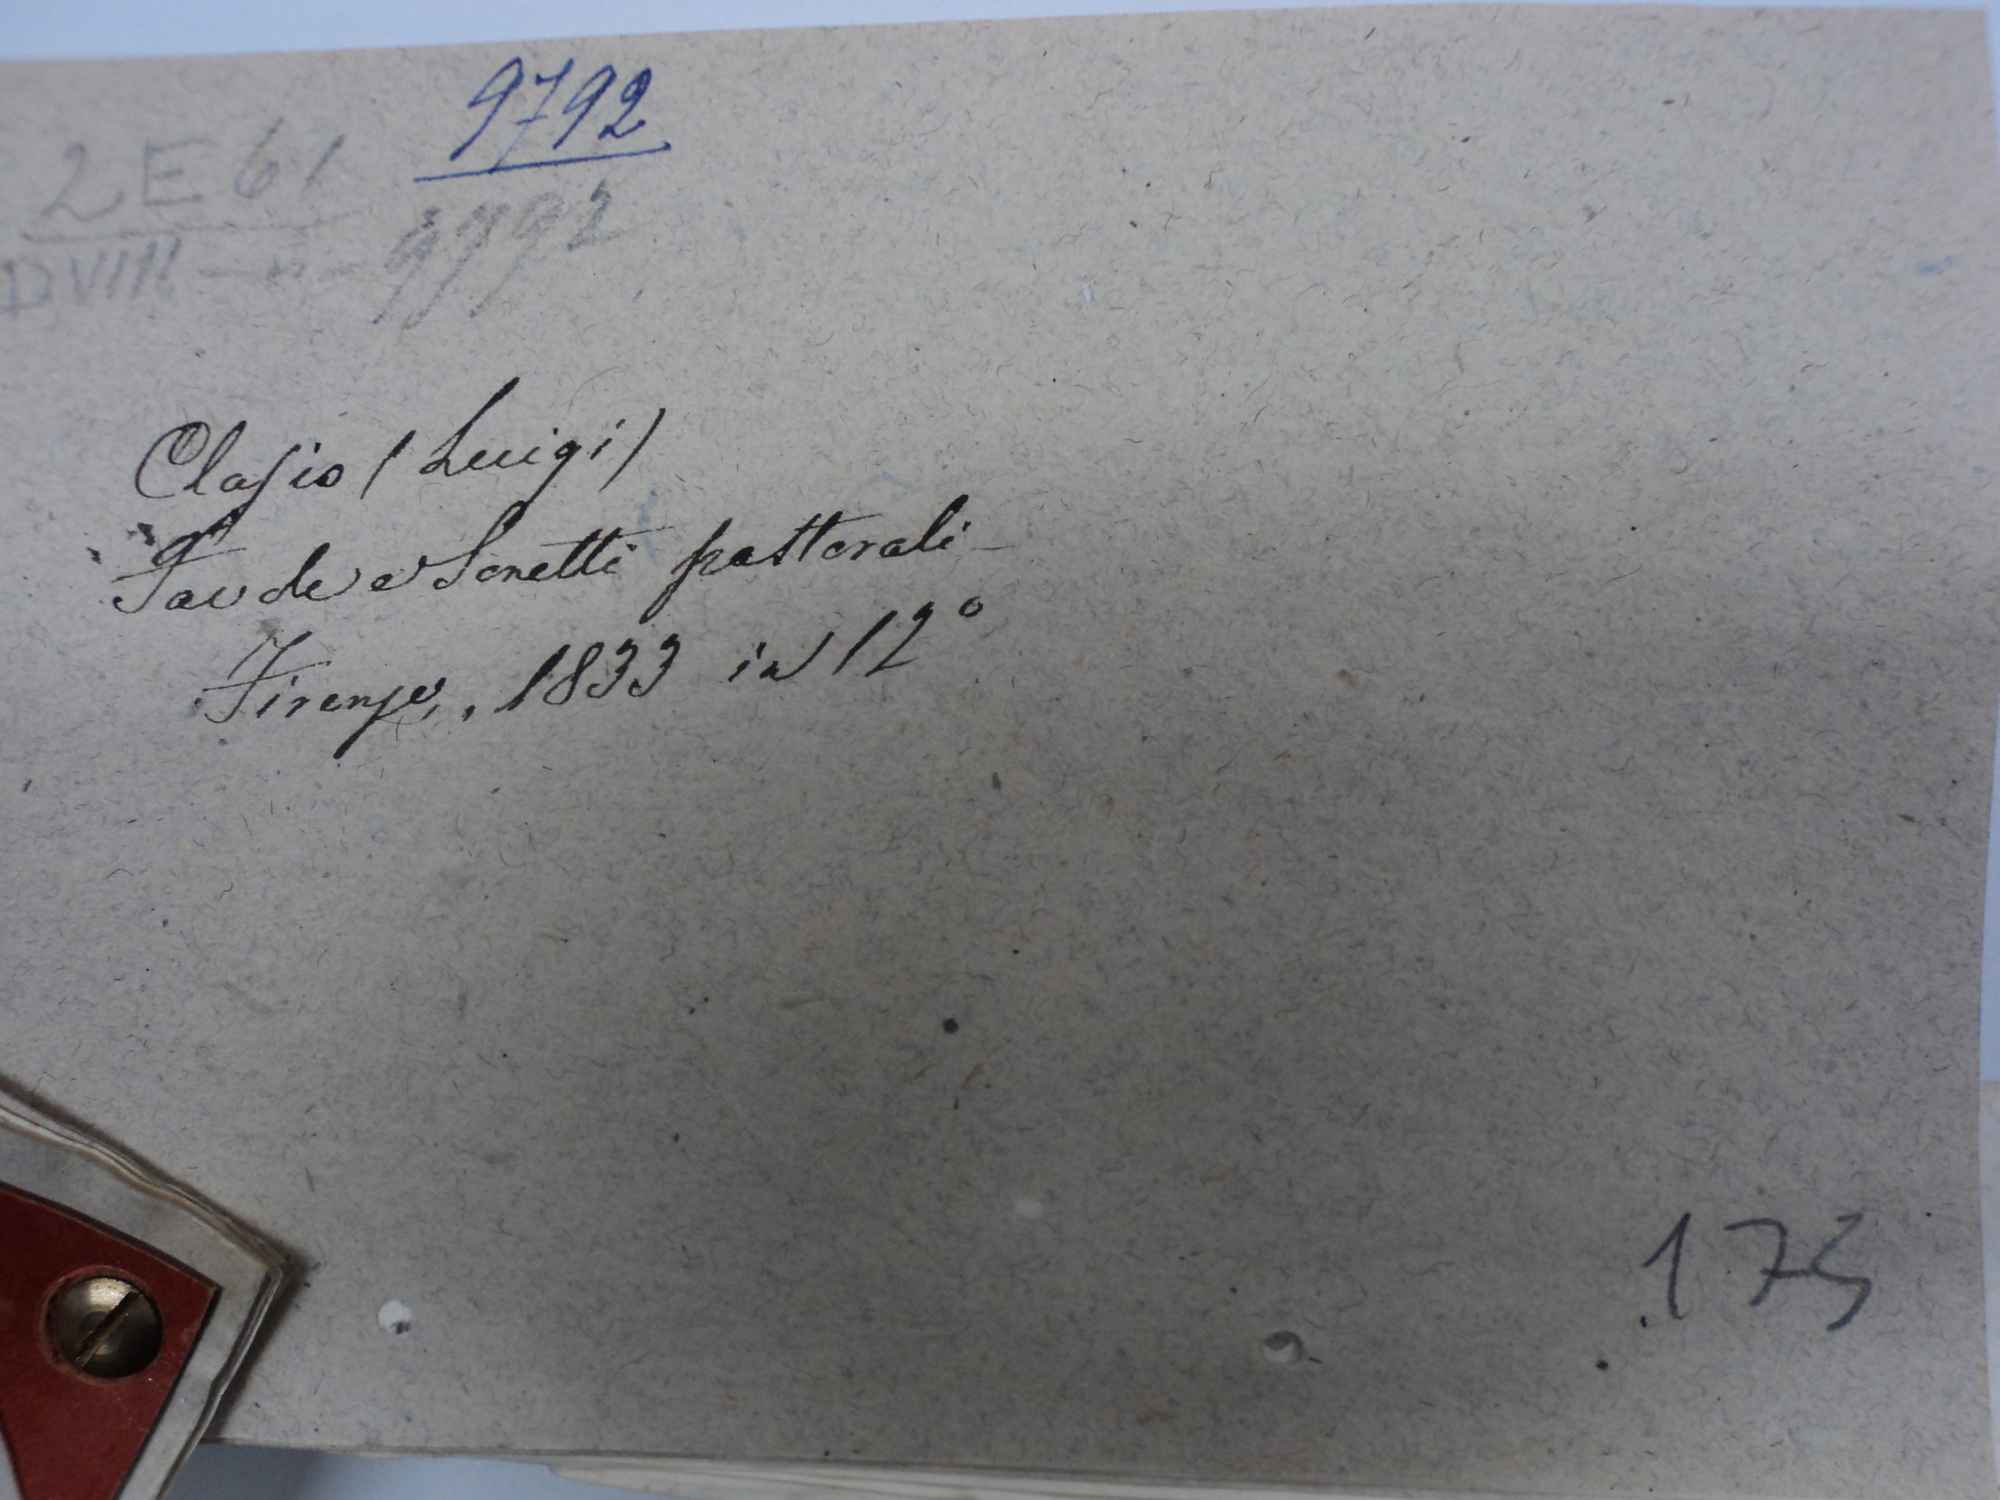 9792
2 E 61
DVIII — " — 9792
Clasio (Luigi)
Favole e Sonetti pastorali
Firenze, 1833 in 12°
173